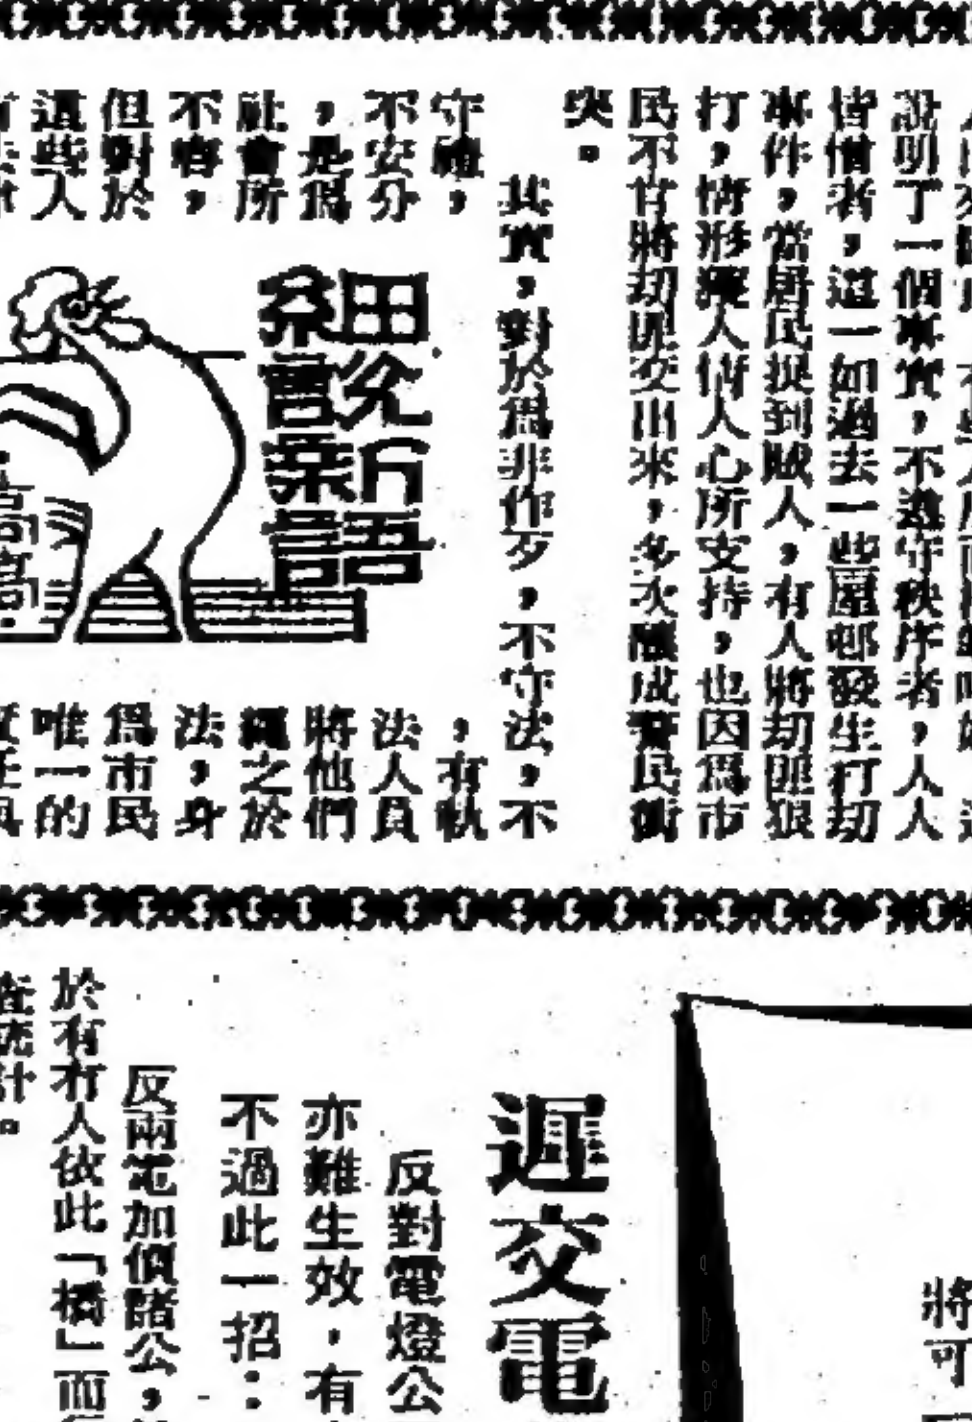 說明了一個事實，不遵守秩序者，人人
皆憎者，這一如過去一些屋邨發生打劫
事件，當居民捉到賊人，有人將劫匪狠
打，情形獲人情人心所支持，也因爲市
民不甘將劫匪交出來，多次釀成警民衝
突。
其實，對於爲非作歹，不守法，不
守禮，
不安分
，是爲
社會所
不容，
但對於
這些人
，有執
法人員
將他們
繩之於
法，身
爲市民
唯一的
遲交電
反對電燈公
亦難生效，有
不過此一招：
反兩電加價諸公，
於有冇人依此「橋」而
統計。
將可